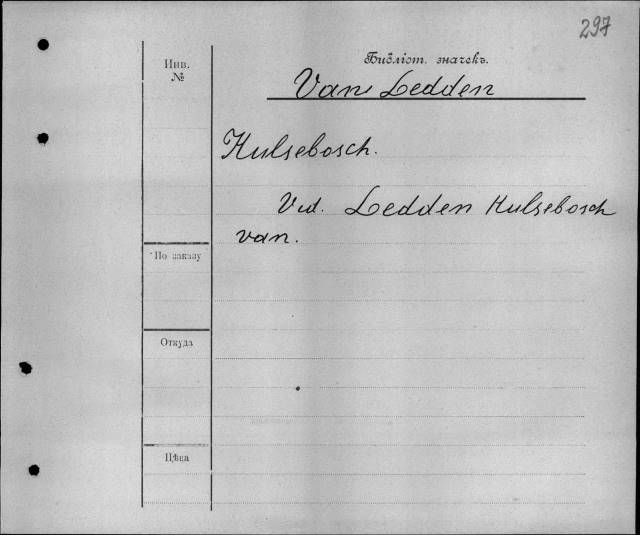 297
Инв.
№
Библіот. значекъ.
Van Ledden
Hulsebosch.
Vid. Ledden Hulsebosch
van.
По заказу
Откуда
Цѣна